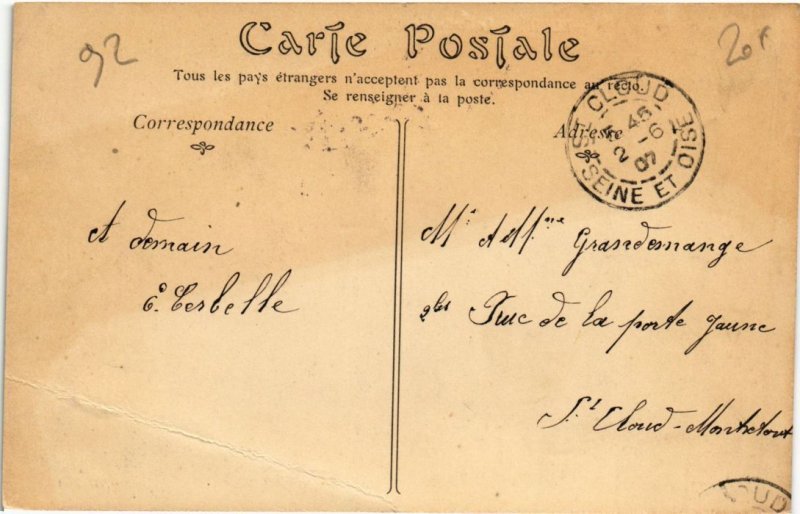 92
20f
Carte Postale
Tous les pays étrangers n'acceptent pas la correspondance au recto.
Se renseigner à la poste.
Correspondance
Adresse
ST CLOUD
SEINE ET OISE
A demain
M. & Mme Grandemange
2bis Rue de la porte Jaune
St Cloud-Montretout
LOUD